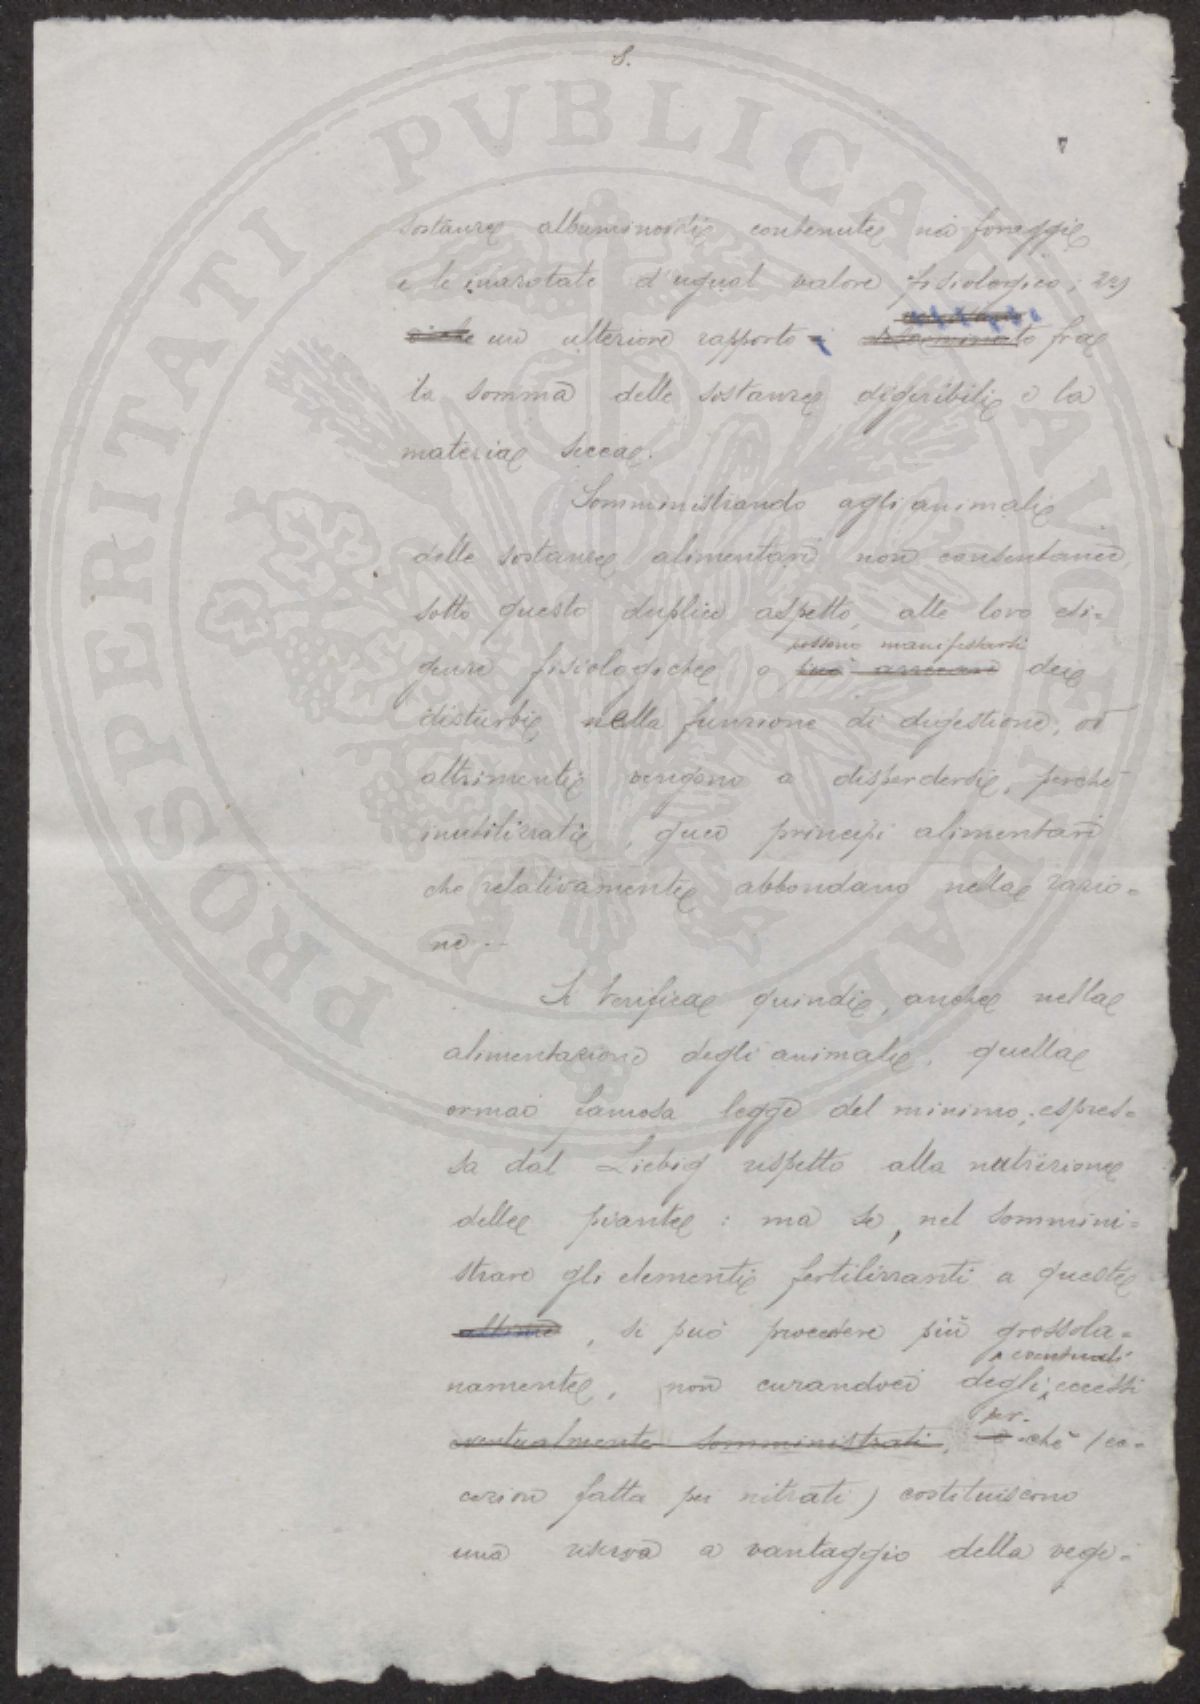 5.
7
sostanze albuminoidi contenute nei foraggi
e le inazotate d'ugual valore fisiologico; 2º)
un ulteriore rapporto determinato fra
la somma delle sostanze digeribili e la
materia secca.
Somministrando agli animali
delle sostanze alimentari non consentanee,
sotto questo duplice aspetto, alle loro esi-
possono manifestarsi
genze fisiologiche o può arrecare dei
disturbi nella funzione di digestione, od
altrimenti vengono a disperdersi, perchè
inutilizzati, quei principi alimentari
che relativamente abbondano nella razio-
ne.-
Si verifica quindi, anche nella
alimentazione degli animali, quella
ormai famosa legge del minimo, espres-
sa dal Liebig rispetto alla nutrizione
delle piante: ma se, nel sommini-
strare gli elementi fertilizzanti a queste
ultime, si può procedere più grossola-
eventuali
namente, non curandoci degli eccessi
per-
eventualmente somministrati, chè (ec-
cezion fatta pei nitrati) costituiscono
una riserva a vantaggio della vege-
PROSPERITATI PVBLICAE AVGENDAE